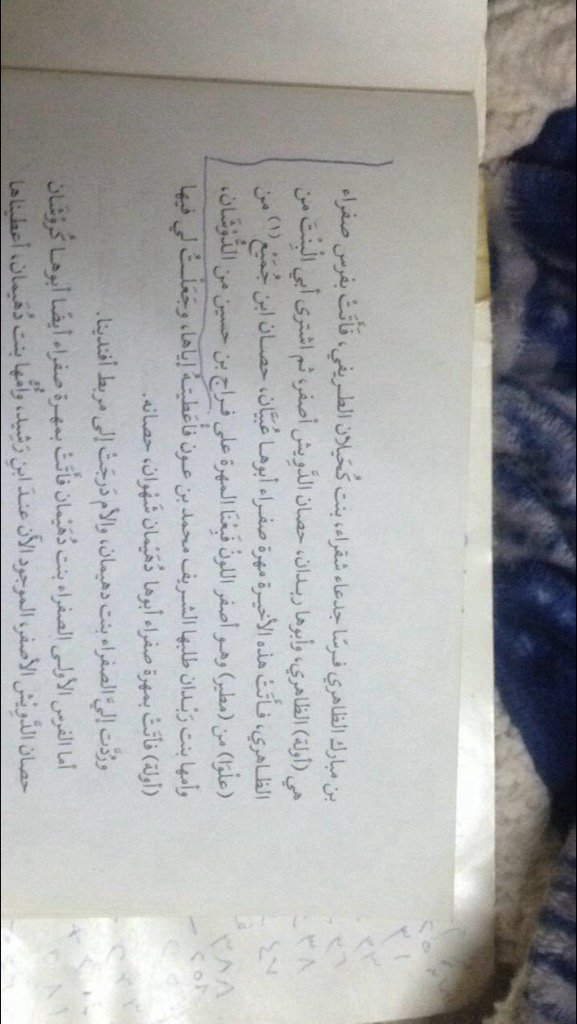 بن مبارك الظاهري فرسًا جدعاء شقراء، بنت كُحَيلان الطريفي، فَأَتَتْ بفرس صفراء
هي (أولة) الظاهري، وأبوها ربدان، حصان الدَّوِيش أصفر، ثم اشترى أبي الْبِنْتَ من
الظاهري، فَأَتَتْ هذه الأخيرة مهرة صفراء أبوها عُبَيَّان، حصان ابن جُمَيْع (١) من
(علْوَا) من (مطير) وهو أصفر اللونْ فَبِعْنَا المهرة على فراج بن حسين من الدُّوْشَان،
وأمها بنت رَبْدان طلبها الشريف محمد بن عون فأعْطَيْتُهُ إياها، وجَعَلْتُ لي فيها
(أولة) فأتَتْ بمهرة صفراء أبوها دُهَيْمَان شَهْوان، حصانه.
ورُدَّت إليَّ الصفراء بنت دهيمان، والأم دَرجَتْ إلى مربط أفندينا.
أما الفرس الأولى الصفراء بنت دُهَيْمَان فأتَتْ بمهرة صفراء أيضًا أبوها كُرُوْشَان
حصان الدَّوِيْش الأصفر، الموجود الآن عند ابن رَشِيد، وأُمُّها بنت دُهَيمان، أعطيناها
٣١
٣٣
٣٦
٣٨
٤٧
٣٨٨
٢٥٨